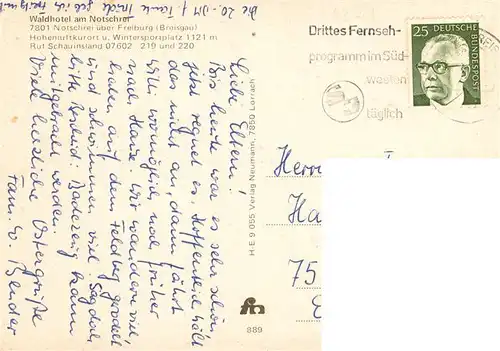 Die 20.-DM / Tach Inge
geb ich in Freiburg
Waldhotel am Notschrei
7801 Notschrei über Freiburg (Breisgau)
Höhenluftkurort u. Wintersportplatz 1121 m
Ruf Schauinsland 07602 219 und 220
Liebe Eltern!
Bis heute war es sehr schön
jetzt regnet es. Hoffentlich hält
das nicht an, dann fährt
Willi womöglich noch früher
nach Hause. Wir wandern viel,
haben auf dem Feldberg gerodelt
und schwimmen viel. Sag doch
bitte Bescheid: Badezeug kann
mitgebracht werden.
Viele herzliche Ostergrüße
Fam. W. Bender
H-E 9 055 Verlag Neumann, 7850 Lörrach
889
Drittes Fernseh-
programm im Süd-
westen
täglich
25
DEUTSCHE
BUNDESPOST
Herrn
Ha
75